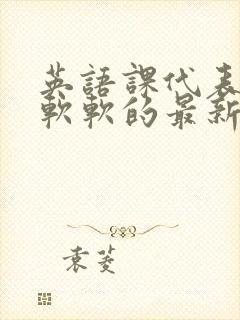 英語課代表
軟軟的最新
袁菱